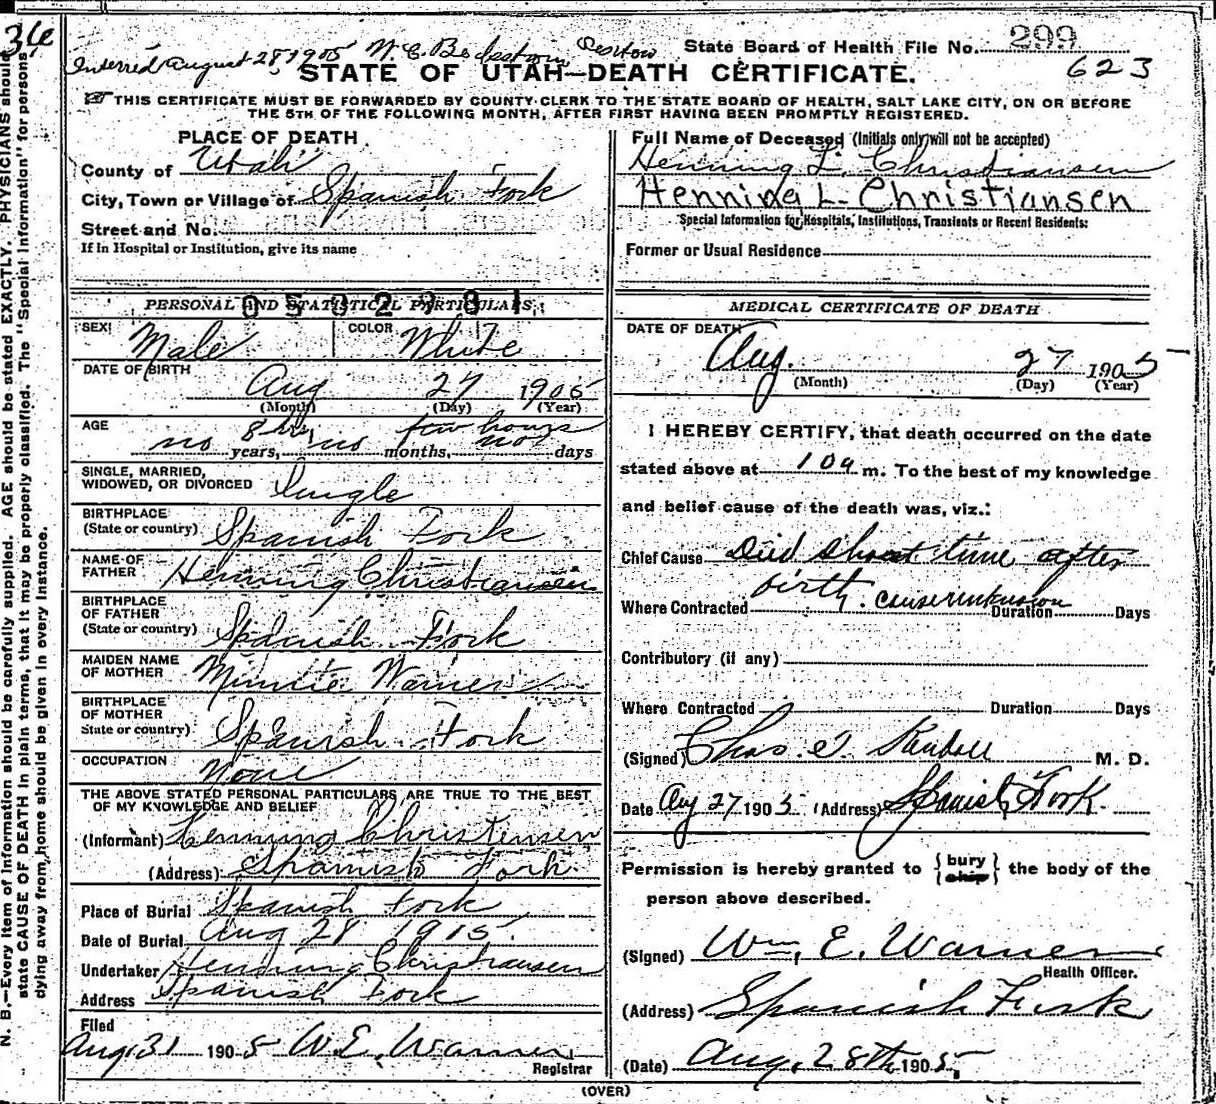 36
State Board of Health File No. 299
Interred August 28, 1905 W. C. Beckstrom Sexton
623
STATE OF UTAH—DEATH CERTIFICATE.
THIS CERTIFICATE MUST BE FORWARDED BY COUNTY CLERK TO THE STATE BOARD OF HEALTH, SALT LAKE CITY, ON OR BEFORE
THE 5TH OF THE FOLLOWING MONTH, AFTER FIRST HAVING BEEN PROMPTLY REGISTERED.
N. B.—Every item of information should be carefully supplied. AGE should be stated EXACTLY. PHYSICIANS should
state CAUSE OF DEATH in plain terms, that it may be properly classified. The "Special Information" for persons
dying away from home should be given in every instance.
PLACE OF DEATH
County of Utah
City, Town or Village of Spanish Fork
Street and No.
If in Hospital or Institution, give its name
Full Name of Deceased (Initials only will not be accepted)
Henning L. Christiansen
Henning L. Christiansen
Special Information for Hospitals, Institutions, Transients or Recent Residents:
Former or Usual Residence
PERSONAL AND STATISTICAL PARTICULARS
SEX Male COLOR White
DATE OF BIRTH
Aug 27 1905
(Month) (Day) (Year)
AGE 8 hrs few hours
no years, no months, no days
SINGLE, MARRIED,
WIDOWED, OR DIVORCED Single
BIRTHPLACE
(State or country) Spanish Fork
NAME OF
FATHER Henning Christiansen
BIRTHPLACE
OF FATHER
(State or country) Spanish Fork
MAIDEN NAME
OF MOTHER Minnie Warner
BIRTHPLACE
OF MOTHER
State or country) Spanish Fork
OCCUPATION None
THE ABOVE STATED PERSONAL PARTICULARS ARE TRUE TO THE BEST
OF MY KNOWLEDGE AND BELIEF
(Informant) Henning Christensen
(Address) Spanish Fork
Place of Burial Spanish Fork
Date of Burial Aug 28 1905
Undertaker Henning Christiansen
Address Spanish Fork
Filed
Aug. 31 1905 W. E. Warner
Registrar
MEDICAL CERTIFICATE OF DEATH
DATE OF DEATH
Aug. 27 1905
(Month) (Day) (Year)
I HEREBY CERTIFY, that death occurred on the date
stated above at 10 a m. To the best of my knowledge
and belief cause of the death was, viz.:
Chief Cause Died short time after
birth. cause unknown
Where Contracted Duration Days
Contributory (if any)
Where Contracted Duration Days
(Signed) Chas. E. M. D.
Date Aug 27 1905 (Address) Spanish Fork.
Permission is hereby granted to {bury ship} the body of the
person above described.
(Signed) Wm. E. Warner
Health Officer.
(Address) Spanish Fork
(Date) Aug. 28th 1905.
(OVER)